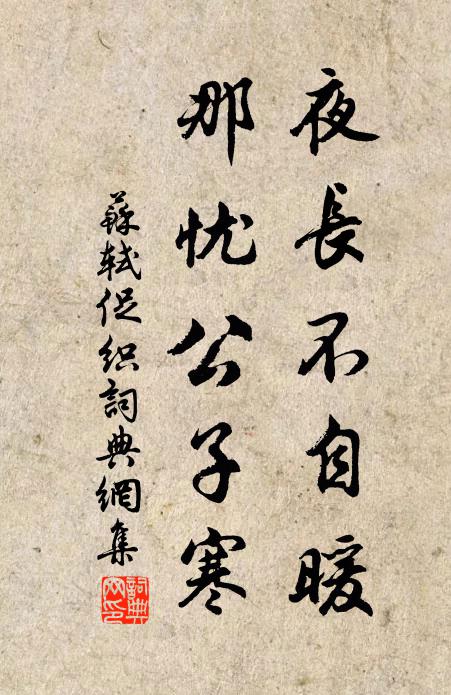 夜長不自暖
那忧公子寒
蘇軾促织詞典網集
詞典